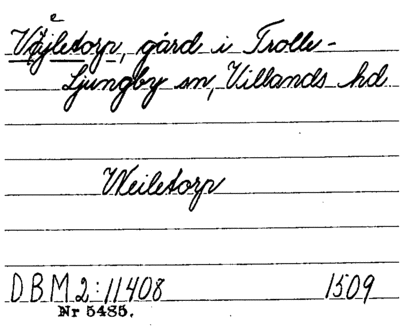 Vejletorp, gård i Trolle-
Ljungby sn, Villands hd
Weiletorp
DBM 2:11408 1509
Nr 5485.